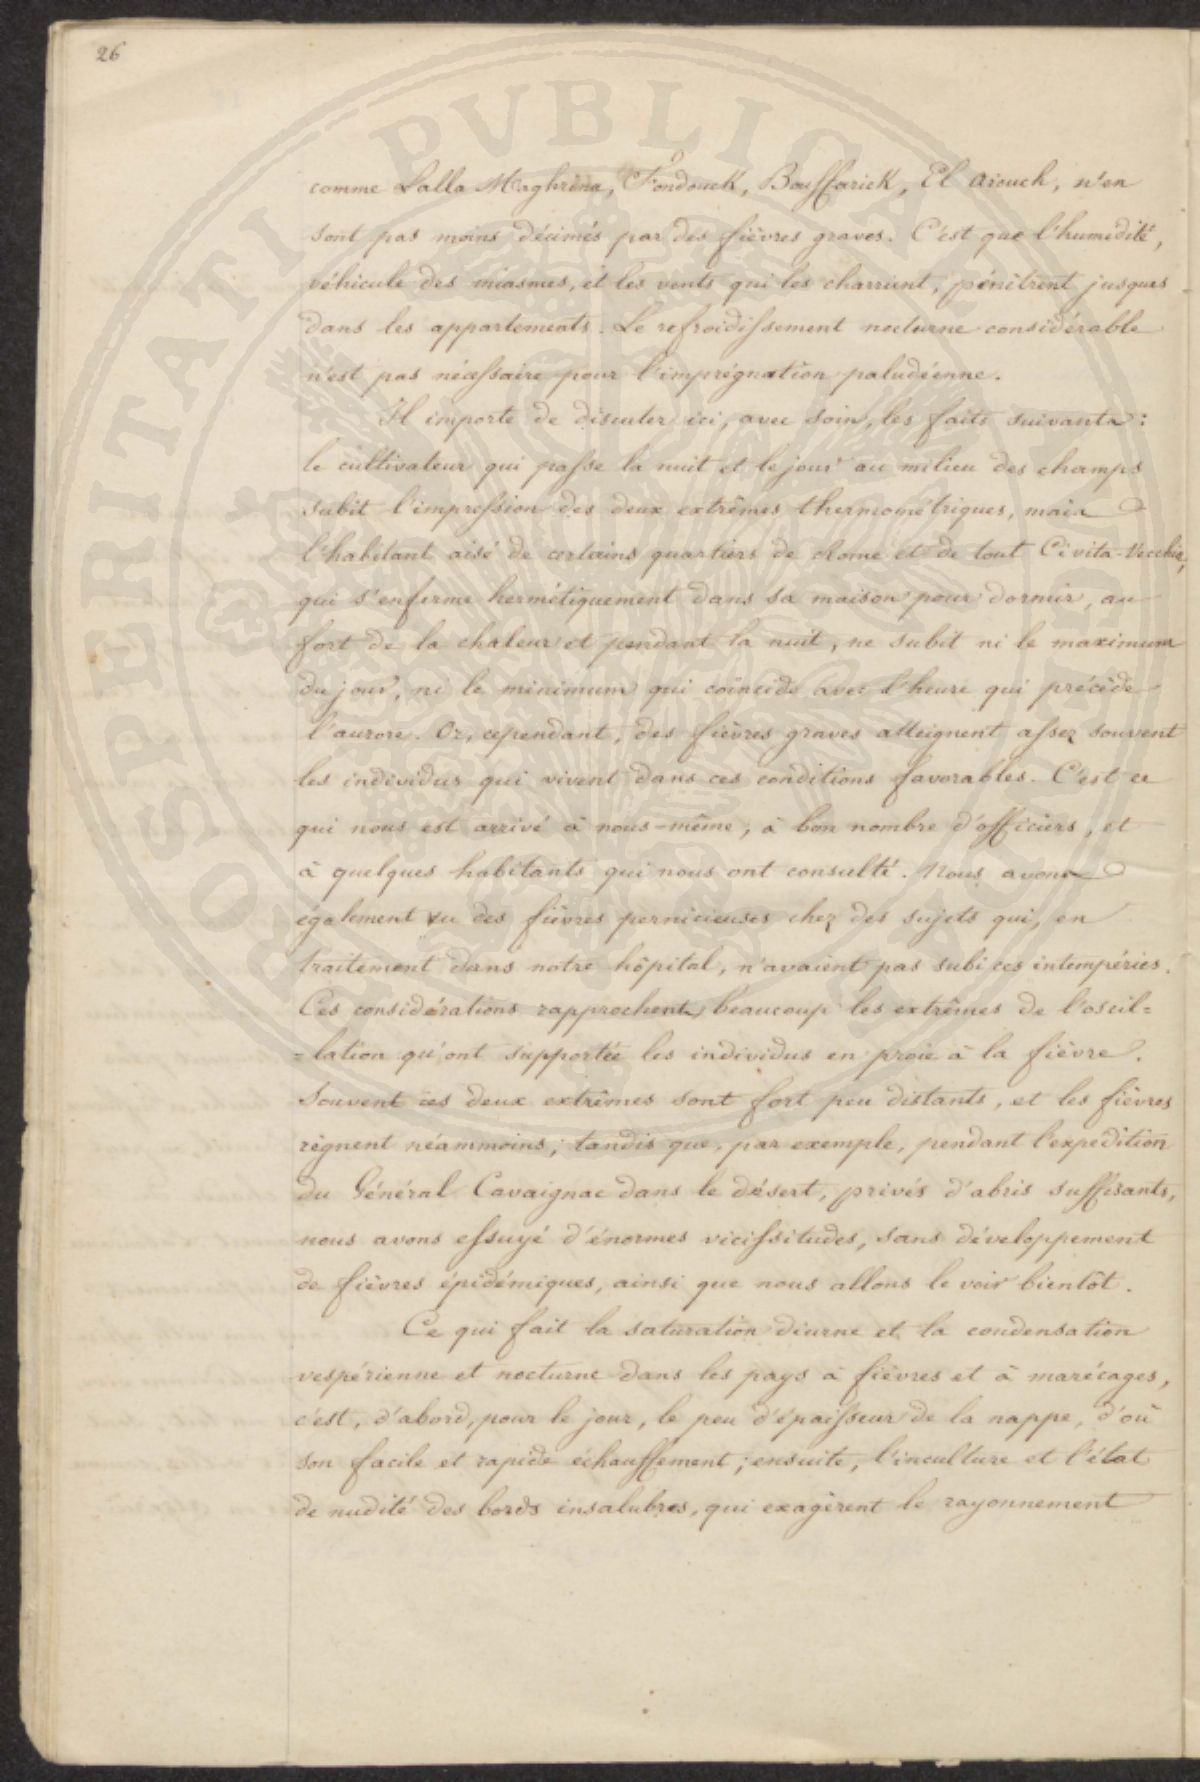 26
comme Lalla Maghrina, Fondouck, Bouffarick, El Arouch, n'en
sont pas moins décimés par des fièvres graves. C'est que l'humidité,
véhicule des miasmes, et les vents qui les charrient, pénètrent jusques
dans les appartements. Le refroidissement nocturne considérable
n'est pas nécessaire pour l'imprégnation paludéenne.
Il importe de discuter ici, avec soin, les faits suivants :
le cultivateur qui passe la nuit et le jour au milieu des champs
subit l'impression des deux extrêmes thermométriques, mais
l'habitant aisé de certains quartiers de Rome et de tout Civita-Vecchia,
qui s'enferme hermétiquement dans sa maison pour dormir, au
fort de la chaleur et pendant la nuit, ne subit ni le maximum
du jour, ni le minimum qui coïncide avec l'heure qui précède
l'aurore. Or, cependant, des fièvres graves atteignent assez souvent
les individus qui vivent dans ces conditions favorables. C'est ce
qui nous est arrivé à nous-même, à bon nombre d'officiers, et
à quelques habitants qui nous ont consulté. Nous avons
également vu des fièvres pernicieuses chez des sujets qui, en
traitement dans notre hôpital, n'avaient pas subi ces intempéries.
Ces considérations rapprochent beaucoup les extrêmes de l'oscil=
=lation qu'ont supportée les individus en proie à la fièvre.
Souvent ces deux extrêmes sont fort peu distants, et les fièvres
règnent néammoins; tandis que, par exemple, pendant l'expédition
du Général Cavaignac dans le désert, privés d'abris suffisants,
nous avons essuyé d'énormes vicissitudes, sans développement
de fièvres épidémiques, ainsi que nous allons le voir bientôt.
Ce qui fait la saturation diurne et la condensation
vespérienne et nocturne dans les pays à fièvres et à marécages,
c'est, d'abord, pour le jour, le peu d'épaisseur de la nappe, d'où
son facile et rapide échauffement; ensuite, l'inculture et l'état
de nudité des bords insalubres, qui exagèrent le rayonnement
PROSPERITATI PVBLICAE